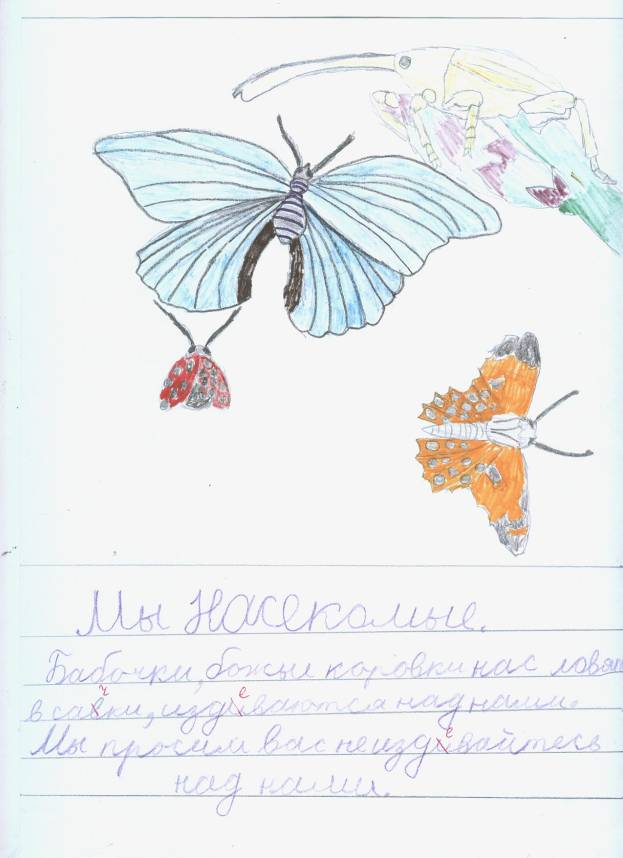 Мы Насекомые.
Бабочки, божьи коровки нас ловят
в сачки, издеваются над нами.
Мы просим вас неиздевайтесь
над нами.